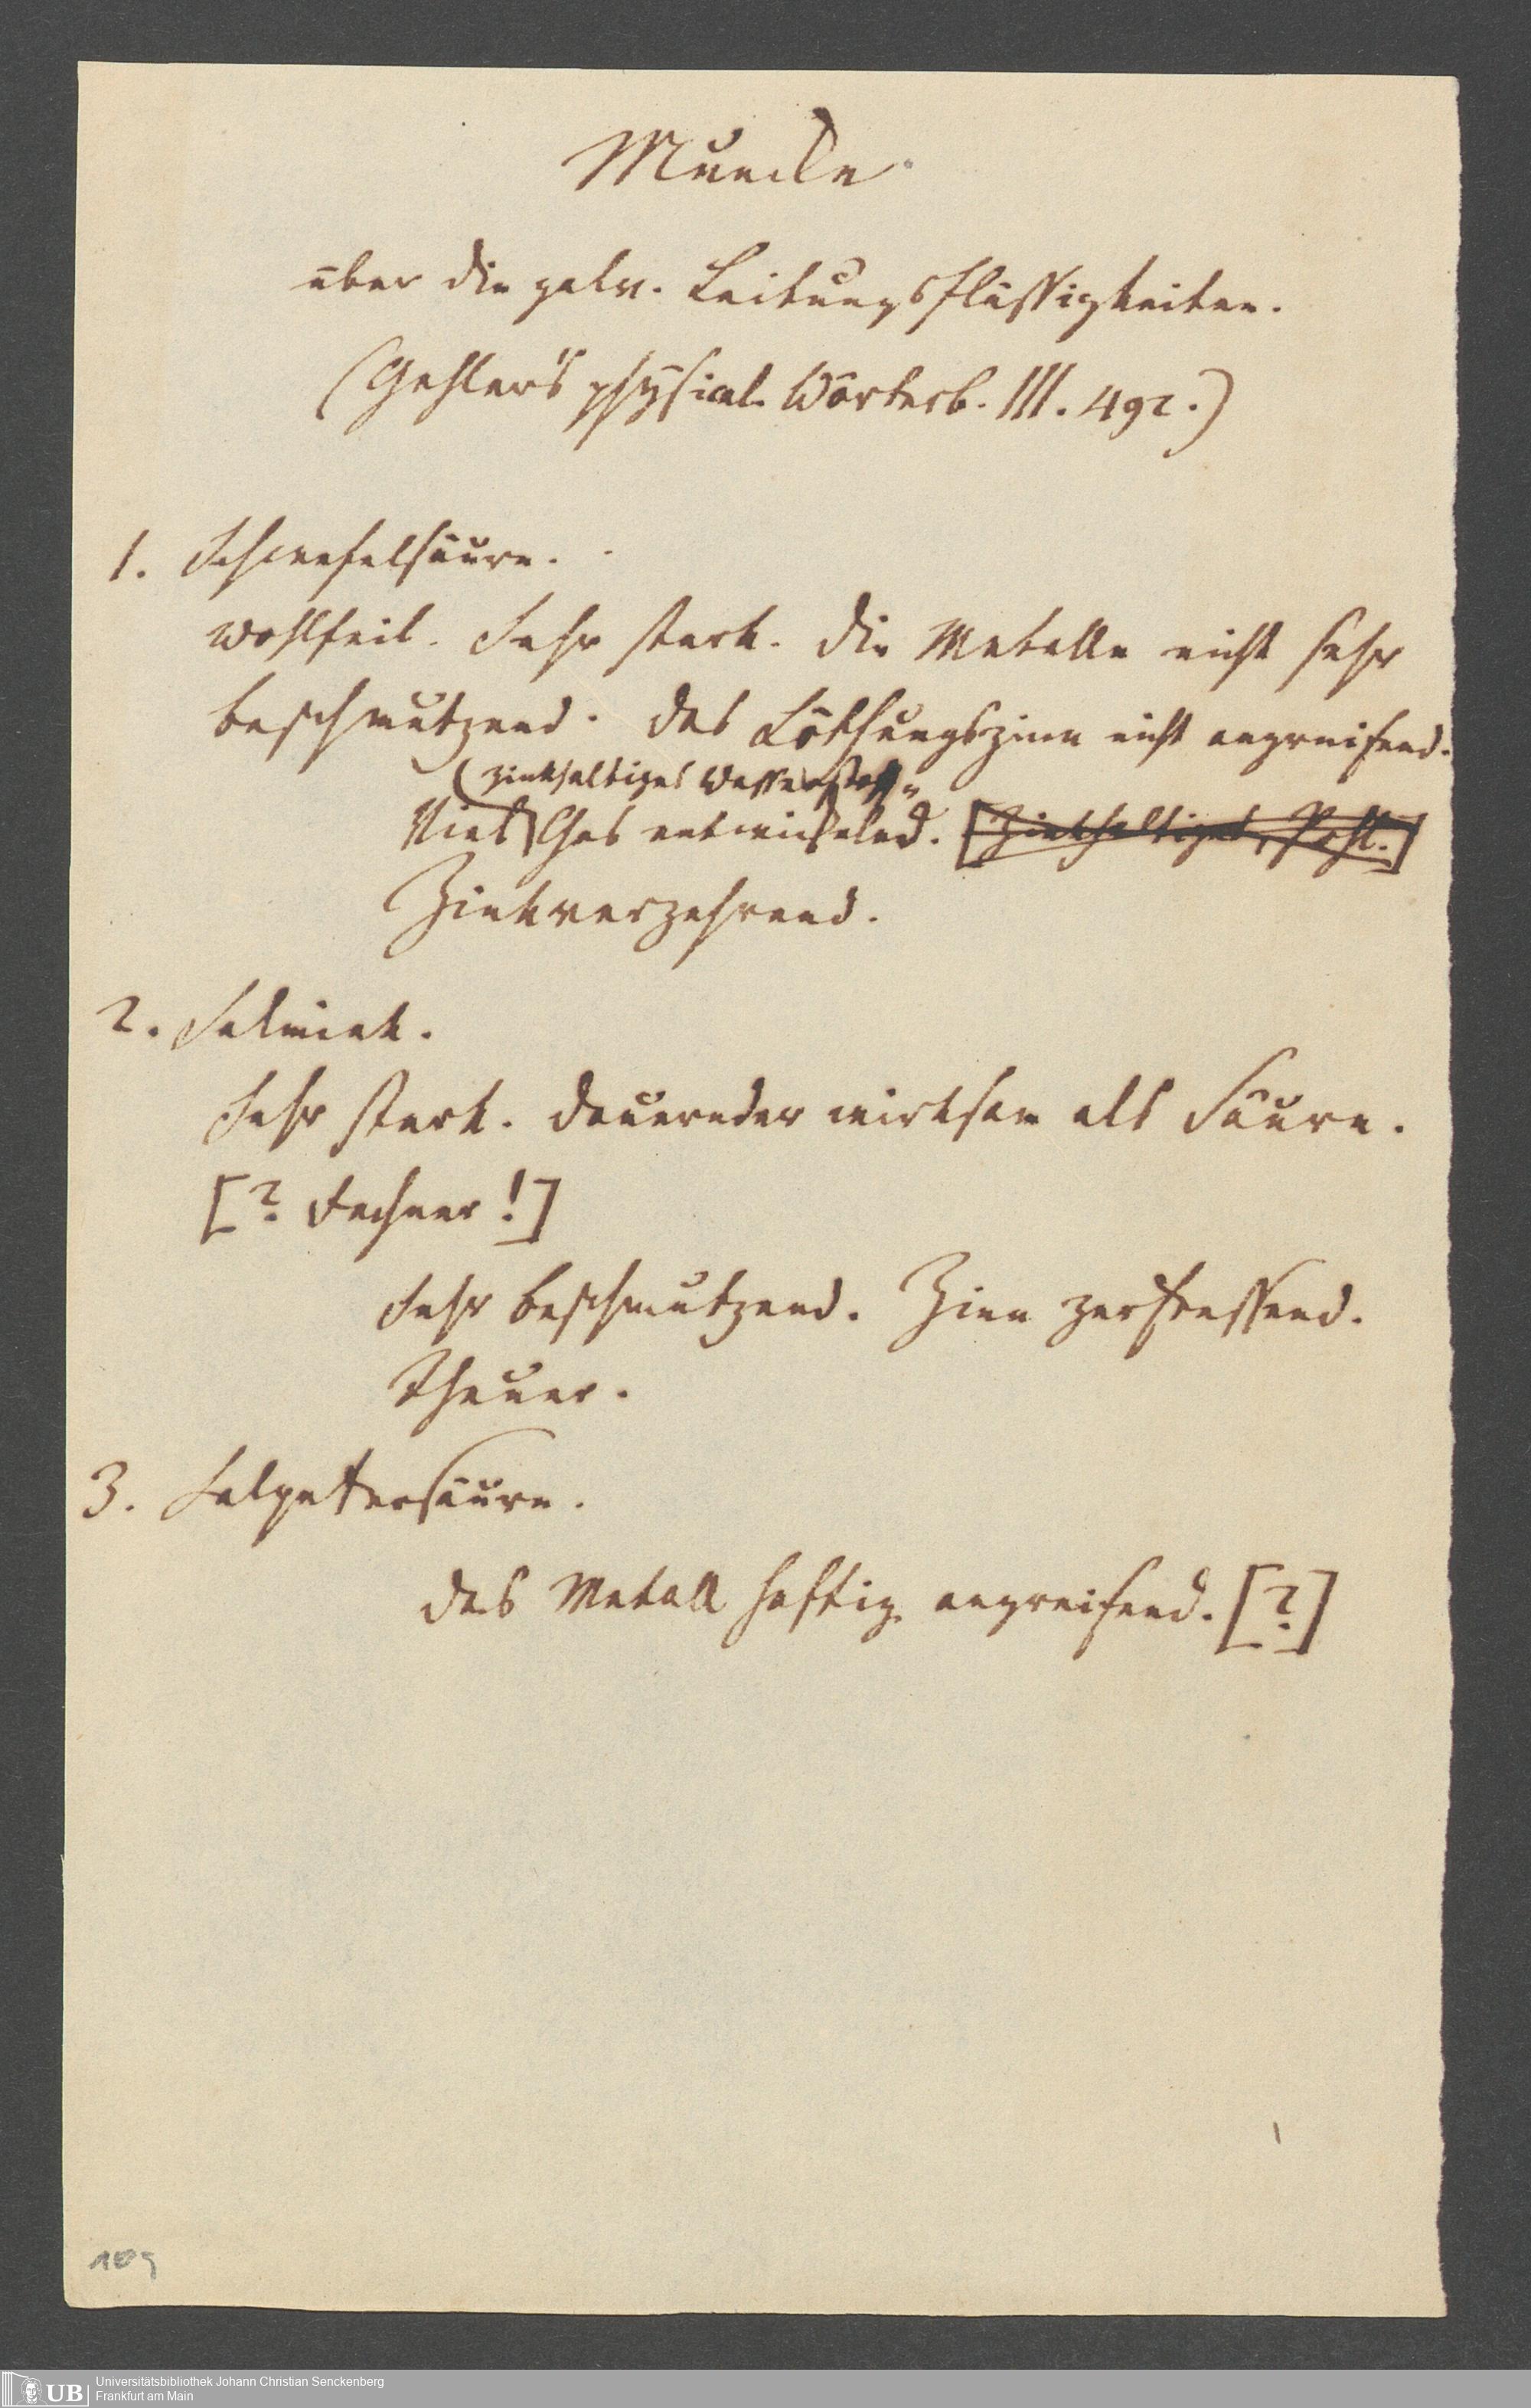 Muncke
über die galv. Leitungsflüssigkeiten.
(Gehler's physical. Wörterb. III. 492.)
1. Schwefelsäure.
wohlfeil. Sehr stark. die Metalle nicht sehr
beschmutzend. das Löthungszinn nicht angreifend.
(zinkhaltiges Wasserstoff-
Viel Gas entwickelnd. [Zinkhaltiges, Pohl.]
Zinkverzehrend.
2. Salmiak.
Sehr stark. dauernder wirksam als Säure.
[? Fechner!]
Sehr beschmutzend. Zinn zerfressend.
Theuer.
3. Salpetersäure.
das Metall heftig angreifend. [?]
109
UB
Universitätsbibliothek Johann Christian Senckenberg
Frankfurt am Main